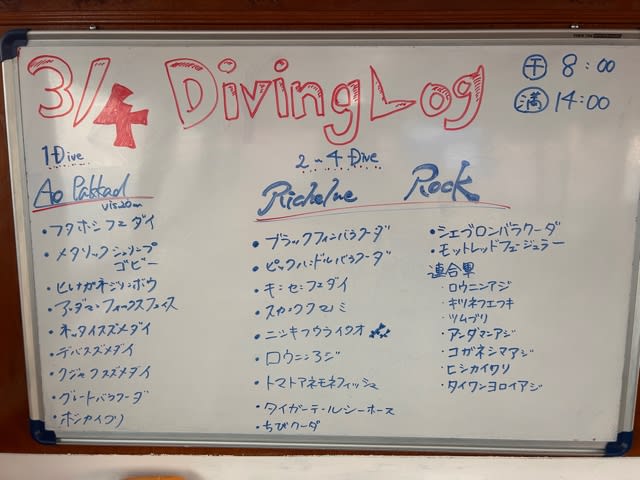 3/4 Diving Log
干 8:00
満 14:00
1 Dive
2~4 Dive
Ao Pakkad
vis 20m
Richelue Rock
・フタホシフエダイ
・メタリックシュリンプ
ゴビー
・ヒレナガネジリンボウ
・アンダマンフォックスフェイス
・ネッタイスズメダイ
・デバスズメダイ
・クジャクスズメダイ
・グレートバラクーダ
・ホシカイワリ
・ブラックフィンバラクーダ
・ピックハンドルバラクーダ
・キンセンフエダイ
・スカシテンジクダイ
・ニシキフウライウオ
・ロウニンアジ
・トマトアネモネフィッシュ
・タイガーテールシーホース
・ちびクーダ
・シェブロンバラクーダ
・モットレッドフュージュラー
連合軍
・ロウニンアジ
・キツネフエフキ
・ツムブリ
・アンダマンアジ
・コガネシマアジ
・ヒシカイワリ
・タイワンヨロイアジ